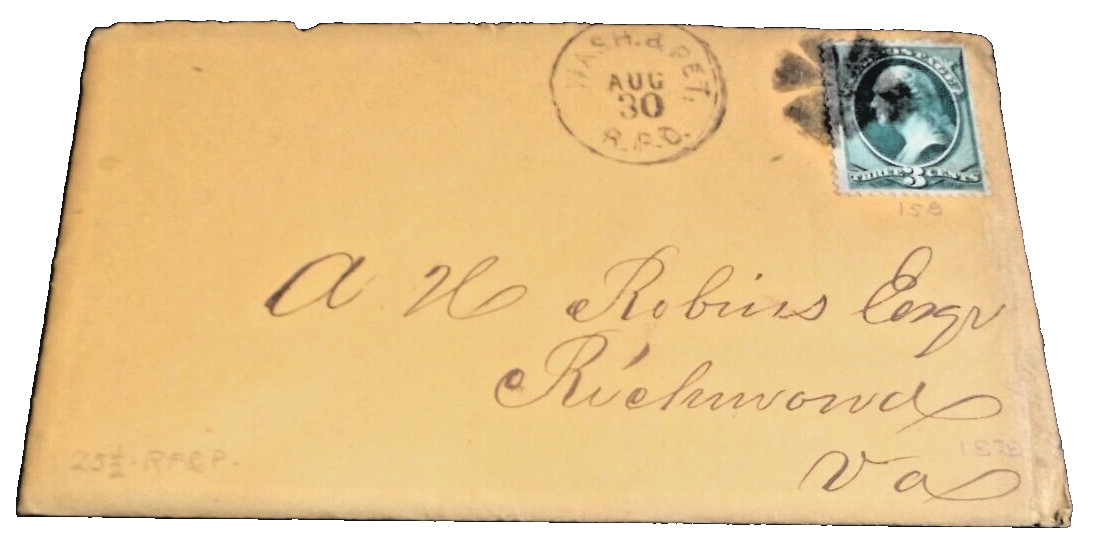 WASH. & PET.
AUG
30
R.P.O.
POSTAGE
THREE 3 CENTS
158
A H Robins Esqr
Richmond
Va
1878
25½ · RF&P.